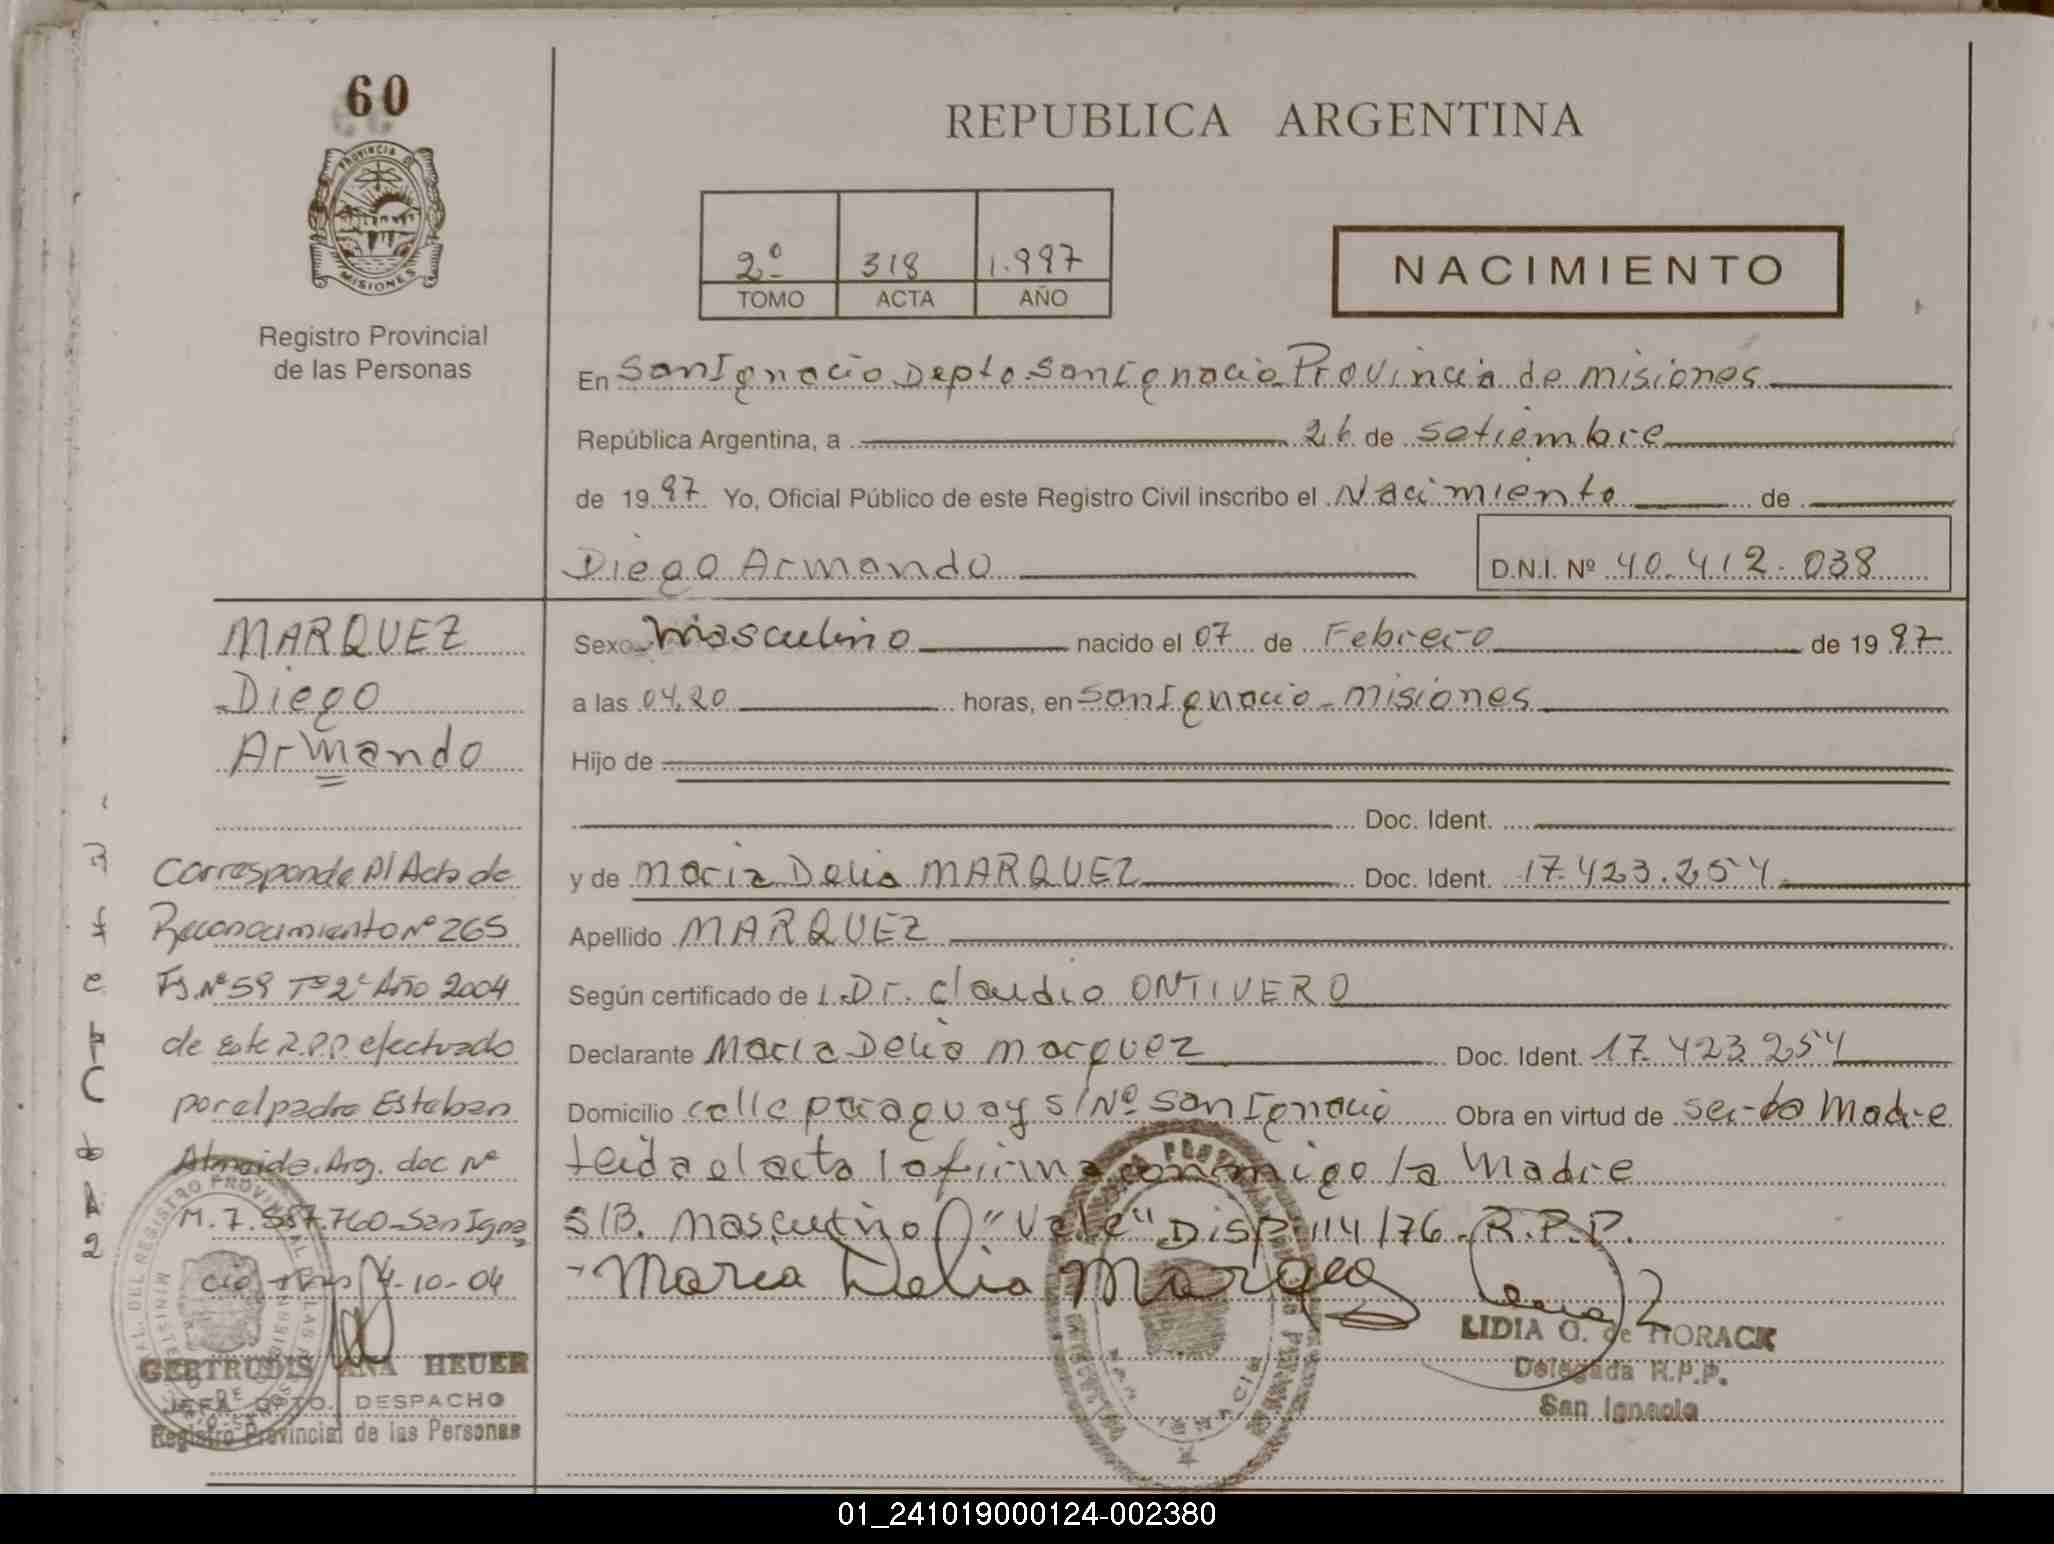 60
PROVINCIA DE
MISIONES
Registro Provincial
de las Personas
REPUBLICA ARGENTINA
2º 318 1.997
TOMO ACTA AÑO
NACIMIENTO
En San Ignacio Depto. San Ignacio Provincia de misiones
República Argentina, a 26 de setiembre
de 1997 Yo, Oficial Público de este Registro Civil inscribo el Nacimiento de
Diego Armando D.N.I. Nº 40.412.038
MARQUEZ
Diego
Armando
Sexo Masculino nacido el 07 de Febrero de 1997
a las 04,20 horas, en San Ignacio - misiones
Hijo de
Doc. Ident.
y de Maria Delia MARQUEZ Doc. Ident. 17.423.254
Apellido MARQUEZ
Según certificado de Dr. Claudio ONTIVERO
Declarante Maria Delia Marquez Doc. Ident. 17.423.254
Domicilio calle paraguay S/Nº San Ignacio Obra en virtud de ser la Madre
Leida el acta la firma conmigo la Madre
S/B. Masculino "Vale" Disp. 114/76. R.P.P.
Maria Delia Marquez
LIDIA G. de HORACK
Delegada R.P.P.
San Ignacio
Corresponde Al Acta de
Reconocimiento Nº 265
Fº Nº 59 Tº 2º Año 2004
de Este R.P.P. efectuado
por el padre Esteban
Almeida. Arg. doc Nº
M. 7.557.760 - San Igna
cio 4-10-04
GERTRUDIS ANA HEUER
JEFA DPTO. DESPACHO
Registro Provincial de las Personas
01_241019000124-002380